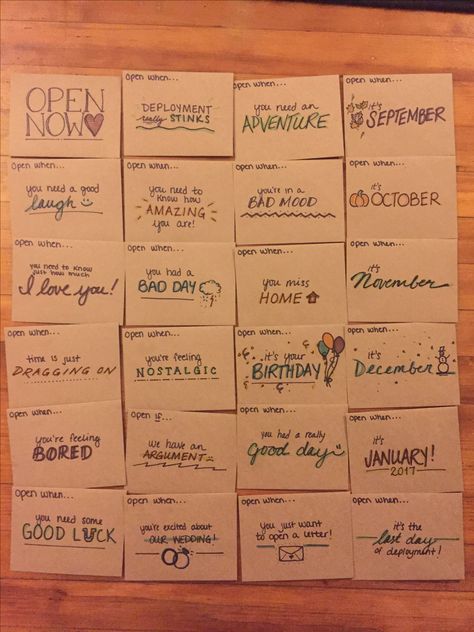 OPEN
NOW
open when...
DEPLOYMENT
really STINKS
open when...
you need an
ADVENTURE
open when...
it's
SEPTEMBER
open when...
you need a good
laugh
open when...
you need to
know how
AMAZING
you are!
open when...
you're in a
BAD MOOD
open when...
it's
OCTOBER
open when...
you need to know
just how much
I love you!
open when...
you had a
BAD DAY
open when...
you miss
HOME
open when...
it's
November
open when...
time is just
DRAGGING ON
open when...
you're feeling
NOSTALGIC
open when...
it's your
BIRTHDAY
open when...
it's
December
open when...
you're feeling
BORED
open if...
we have an
ARGUMENT
open when...
you had a really
Good day
open when...
it's
JANUARY!
2017
open when...
you need some
GOOD LUCK
open when...
you're excited about
OUR WEDDING!
open when...
you just want
to open a letter!
open when...
it's the
last day
of deployment!